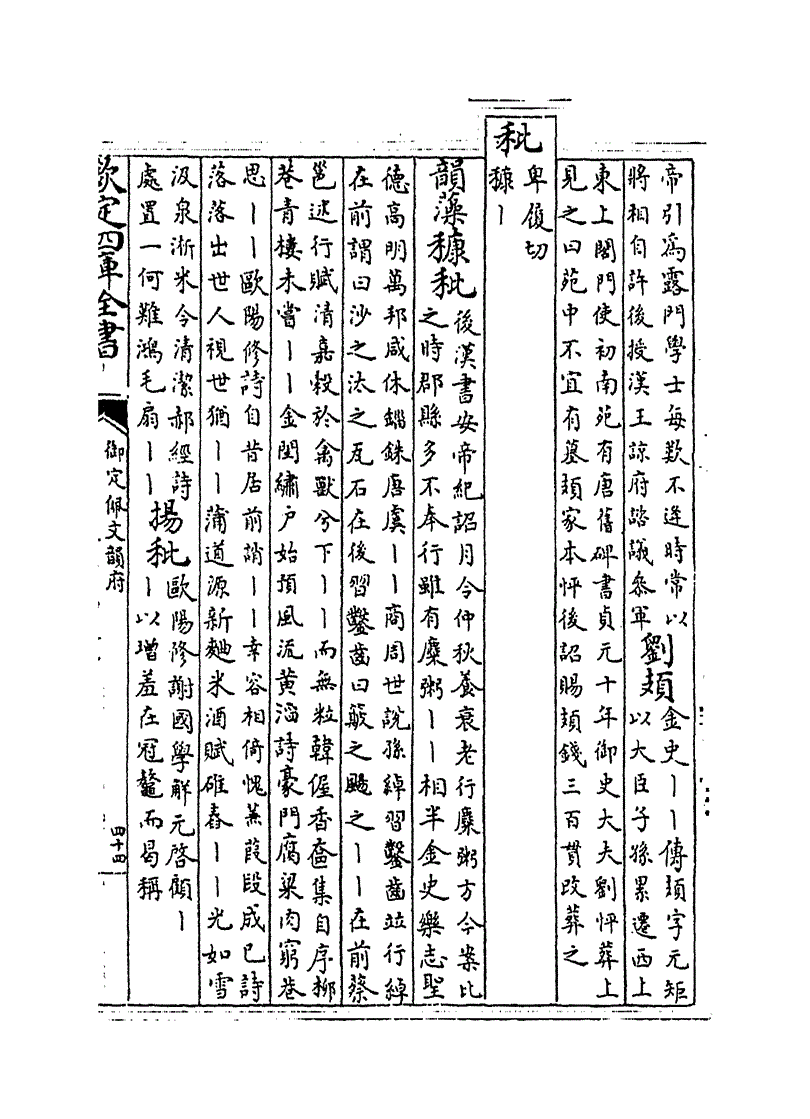 帝引為露門學士每歎不逢時常以
將相自許後授漢王諒府諮議叅軍
劉頍
金史丨丨傳頍字元矩
以大臣子孫累遷西上
東上閤門使初南苑有唐舊碑書貞元十年御史大夫劉怦葬上
見之曰苑中不宜有墓頍家本怦後詔賜頍錢三百貫改葬之
秕
卑履切
糠丨
韻藻
糠秕
後漢書安帝紀詔月令仲秋養衰老行糜粥方今案比
之時郡縣多不奉行雖有糜粥丨丨相半金史樂志聖
德高明萬邦咸休錙銖唐虞丨丨商周世說孫綽習鑿齒並行綽
在前謂曰沙之汰之瓦石在後習鑿齒曰簸之颺之丨丨在前蔡
邕述行賦清嘉穀於禽獸兮下丨丨而無粒韓偓香奩集自序柳
巷青樓未嘗丨丨金閨繡户始預風流黄滔詩豪門腐粱肉窮巷
思丨丨歐陽修詩自昔居前誚丨丨幸容相倚愧蒹葭段成已詩
落落出世人視世猶丨丨蒲道源新麯米酒賦碓舂丨丨光如雪
汲泉淅米令清潔郝經詩
處置一何難鴻毛扇丨丨
揚秕
歐陽修謝國學解元啓顧丨
丨以增羞在冠鼇而曷稱
欽定四庫全書
御定佩文韻府
四十四